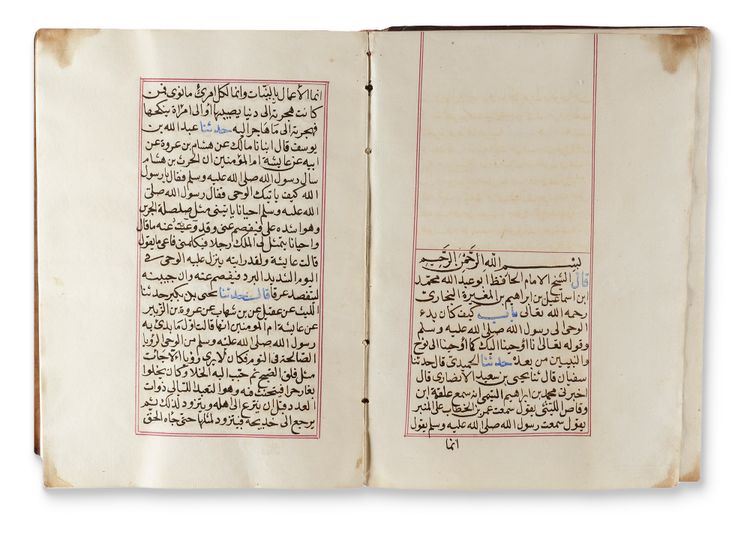 بسم الله الرحمن الرحيم
قال الشيخ الامام الحافظ ابو عبد الله محمد
ابن اسماعيل بن ابراهيم بن المغيرة البخاري
رحمه الله تعالى باب كيف كان بدء
الوحي الى رسول الله صلى الله عليه وسلم
وقوله تعالى انا اوحينا اليك كما اوحينا الى نوح
والنبيين من بعده حدثنا الحميدي قال حدثنا
سفيان قال ثنا يحيى بن سعيد الانصاري قال
اخبرني محمد بن ابراهيم التيمي انه سمع علقمة ابن
وقاص الليثي يقول سمعت عمر بن الخطاب على المنبر
يقول سمعت رسول الله صلى الله عليه وسلم يقول
انما
انما الاعمال بالنيات وانما لكل امرئ ما نوى فمن
كانت هجرته الى دنيا يصيبها او الى امراة ينكحها
فهجرته الى ما هاجر اليه حدثنا عبد الله بن
يوسف قال انبانا مالك عن هشام بن عروة عن
ابيه عن عايشة ام المؤمنين ان الحرث بن هشام
سال رسول الله صلى الله عليه وسلم فقال يا رسول
الله كيف ياتيك الوحي فقال رسول الله صلى
الله عليه وسلم احيانا ياتيني مثل صلصلة الجرس
وهو اشده علي فيفصم عني وقد وعيت عنه ما قال
واحيانا يتمثل لي الملك رجلا فيكلمني فاعي ما يقول
قالت عايشة ولقد رايته ينزل عليه الوحي في
اليوم الشديد البرد فيفصم عنه وان جبينه
ليتفصد عرقا قال حدثنا يحيى بن بكير حدثنا
الليث عن عقيل عن بن شهاب عن عروة بن الزبير
عن عايشة ام المومنين انها قالت اول ما بدئ به
رسول الله صلى الله عليه وسلم من الوحي الرؤيا
الصالحة في النوم فكان لا يرى رؤيا الا جات
مثل فلق الصبح ثم حبب اليه الخلا وكان يخلو
بغار حرا فيتحنث فيه وهو التعبد الليالي ذوات
العدد قبل ان ينزع الى اهله ويتزود لذلك ثم
يرجع الى خديجة فيتزود لمثلها حتى جاه الحق